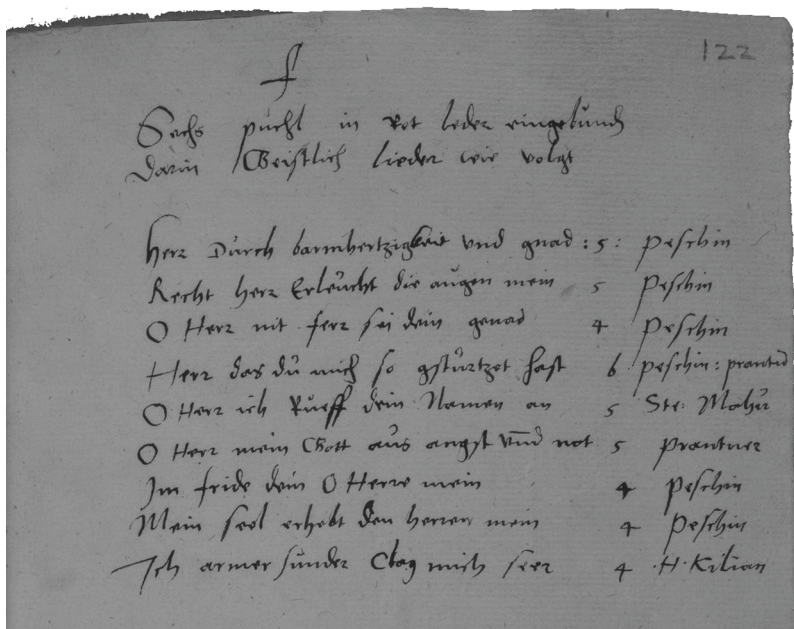 122
f
Sechs püchl in Rot leder eingebund
darin Geistlich lieder wie volgt
Herr Durch barmhertzigkeit vnd gnad : 5 : Peschin
Recht herr Erleücht die aügen mein 5 Peschin
O Herr nit ferr sei dein genad 4 Peschin
Herr das dü mich so gstürtzet hast 6 Peschin : prantn
O Herr ich Rüeff dein Namen an 5 Ste: Mahü
O Herr mein Gott aüs angst vnnd not 5 Prantner
Im fride dein O Herre mein 4 Peschin
Mein seel erhebt den herren mein 4 Peschin
Ich armer sünder Clag mich seer 4 .H. Kilian